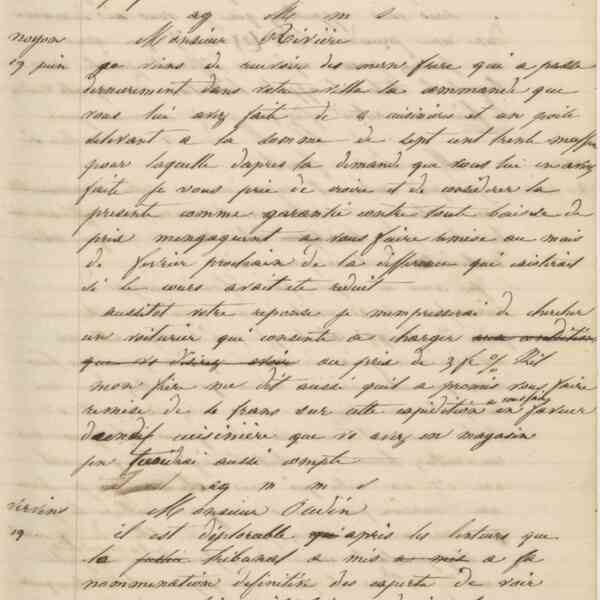 ag M m s
noyon Monsieur Rivière
19 juin je viens de recevoir des mon frere qui a passé
dernierement dans votre ville la commande que
vous lui avez faite de 4 cuisinieres et un poele
delevant a la somme de sept cent trente
pour laquelle dapres la demande que vous lui en avez
faite je vous prie de croire et de considérer la
presente comme garantie contre tout baisse de
prix mengageant a vous faire remise au mois
de fevrier prochain de la difference qui existerait
si le cours avait été reduit
aussitot votre reponse je mempresserai de chercher
un voiturier qui consente a charger aux conditions
que vs désirez avoir au prix de 3 fr %
mon frère me dit aussi quil a promis vous faire
remise de de frans sur cette expédition en faveur
cuisinière que vs avez en magasin
jen tiendrai aussi compte
ag m m s
vervins Monsieur Oudin
19 il est déplorable qu'apres les lenteurs que
le tribunal a mis a mis a sa
nommination definitive des experts de voir